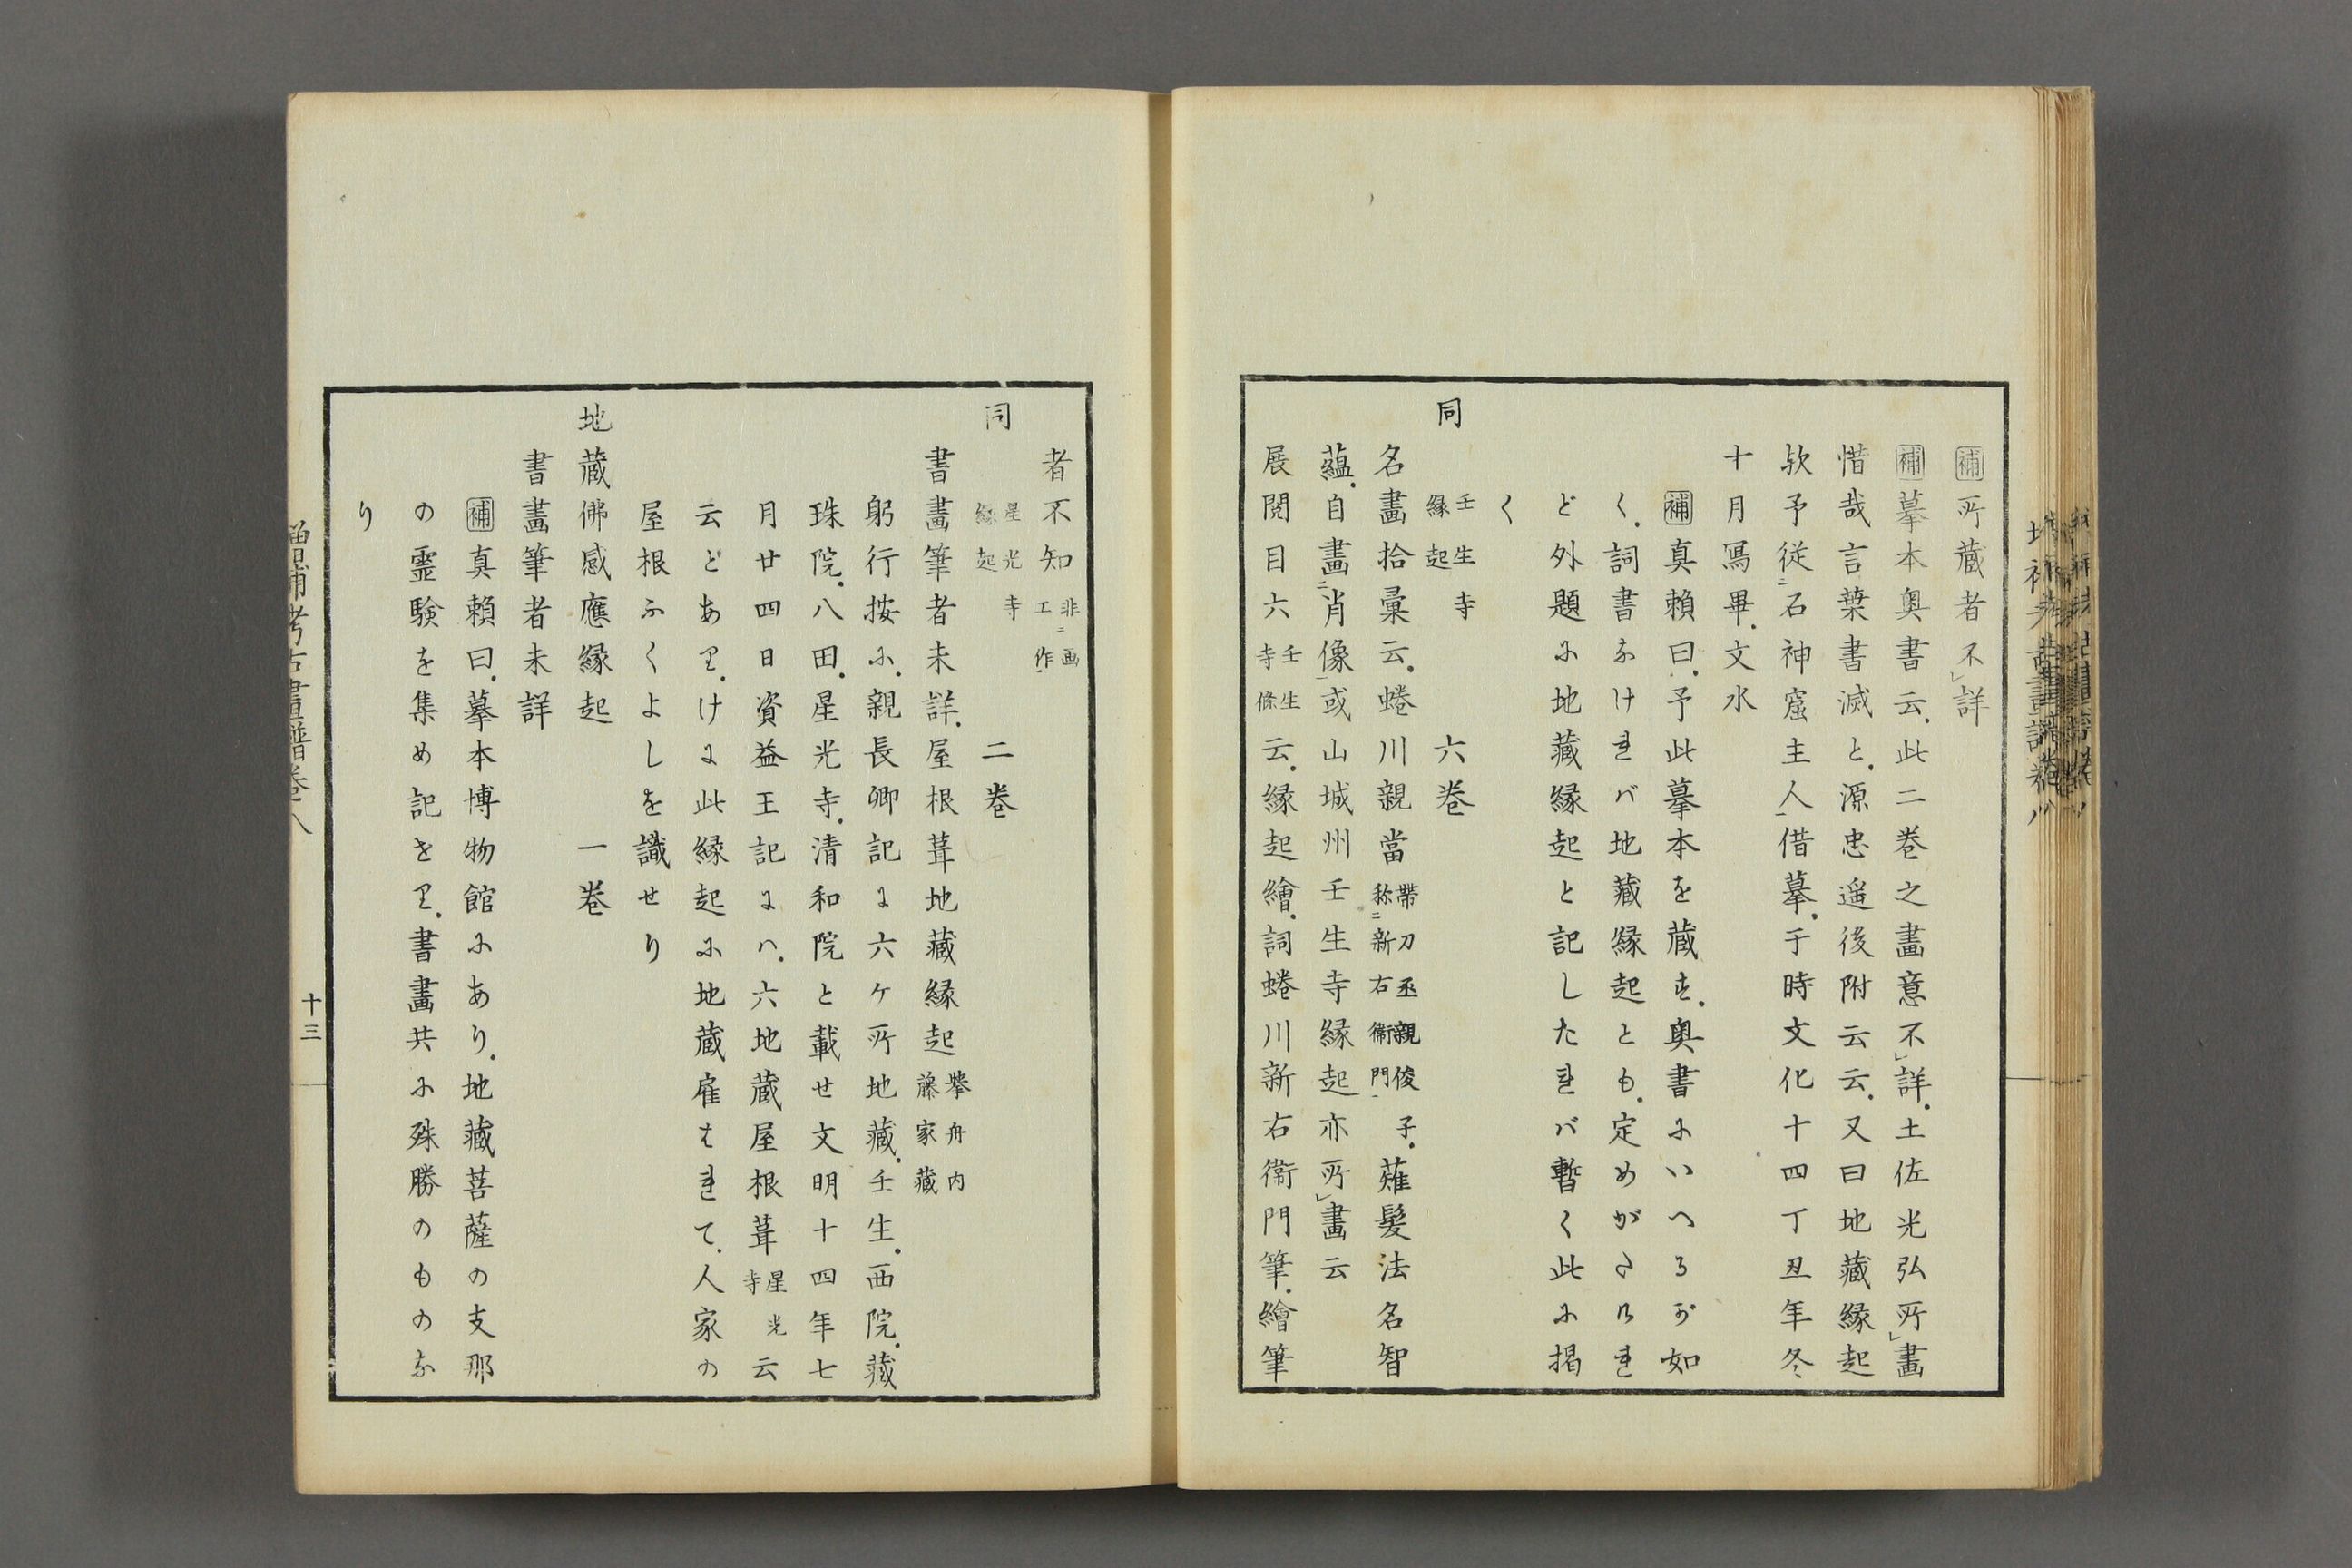 補所藏者不詳
補摹本奥書云此二巻之畫意不詳土佐光弘所畫
惜哉言葉書滅と源忠遥後附云云又曰地藏縁起
欤予従ニ石神窟主人一借摹于時文化十四丁丑年冬
十月寫畢文水
補真頼曰予此摹本を藏す奥書にいへるが如
く詞書なけれバ地藏縁起とも定めがたけれ
ど外題に地藏縁起と記したれバ暫く此に掲
く
同 壬生寺縁起 六巻
名畫拾彙云蜷川親當帶刀丞親俊子称ニ新右衞門一薙髮法名智
蘊自畫ニ肖像一或山城州壬生寺縁起亦所畫云
展閲目六壬生寺條云縁起繪詞蜷川新右衞門筆繪筆
者不知非ニ画工作一
同 星光寺縁起 二巻
書畫筆者未詳屋根葺地藏縁起挙舟内藤家藏
躬行按に親長卿記に六ケ所地藏壬生西院藏
珠院八田星光寺清和院と載せ文明十四年七
月廿四日資益王記にハ六地蔵屋根葺星光寺云
云とあり けに此縁起に地蔵雇はれて人家の
屋根ふくよしを識せり
地藏佛感應縁起 一巻
書畫筆者未詳
補真頼曰摹本博物館にあり地藏菩薩の支那
の霊験を集め記せり書畫共に殊勝のものな
り
増補考古畫譜巻八 十三